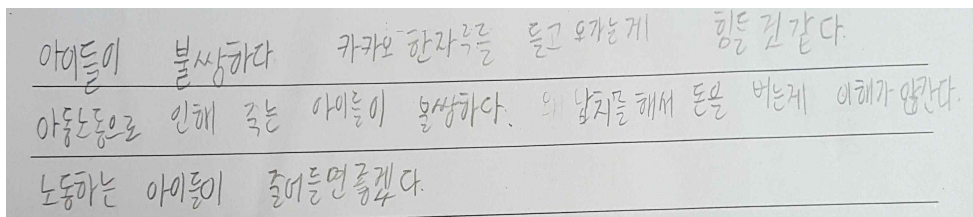 아이들이 불쌍하다 카카오 한자루를 들고 오가는게 힘든 것 같다.
아동노동으로 인해 죽는 아이들이 불쌍하다. 왜 납치를 해서 돈을 버는게 이해가 않간다.
노동하는 아이들이 줄어들면좋겠다.